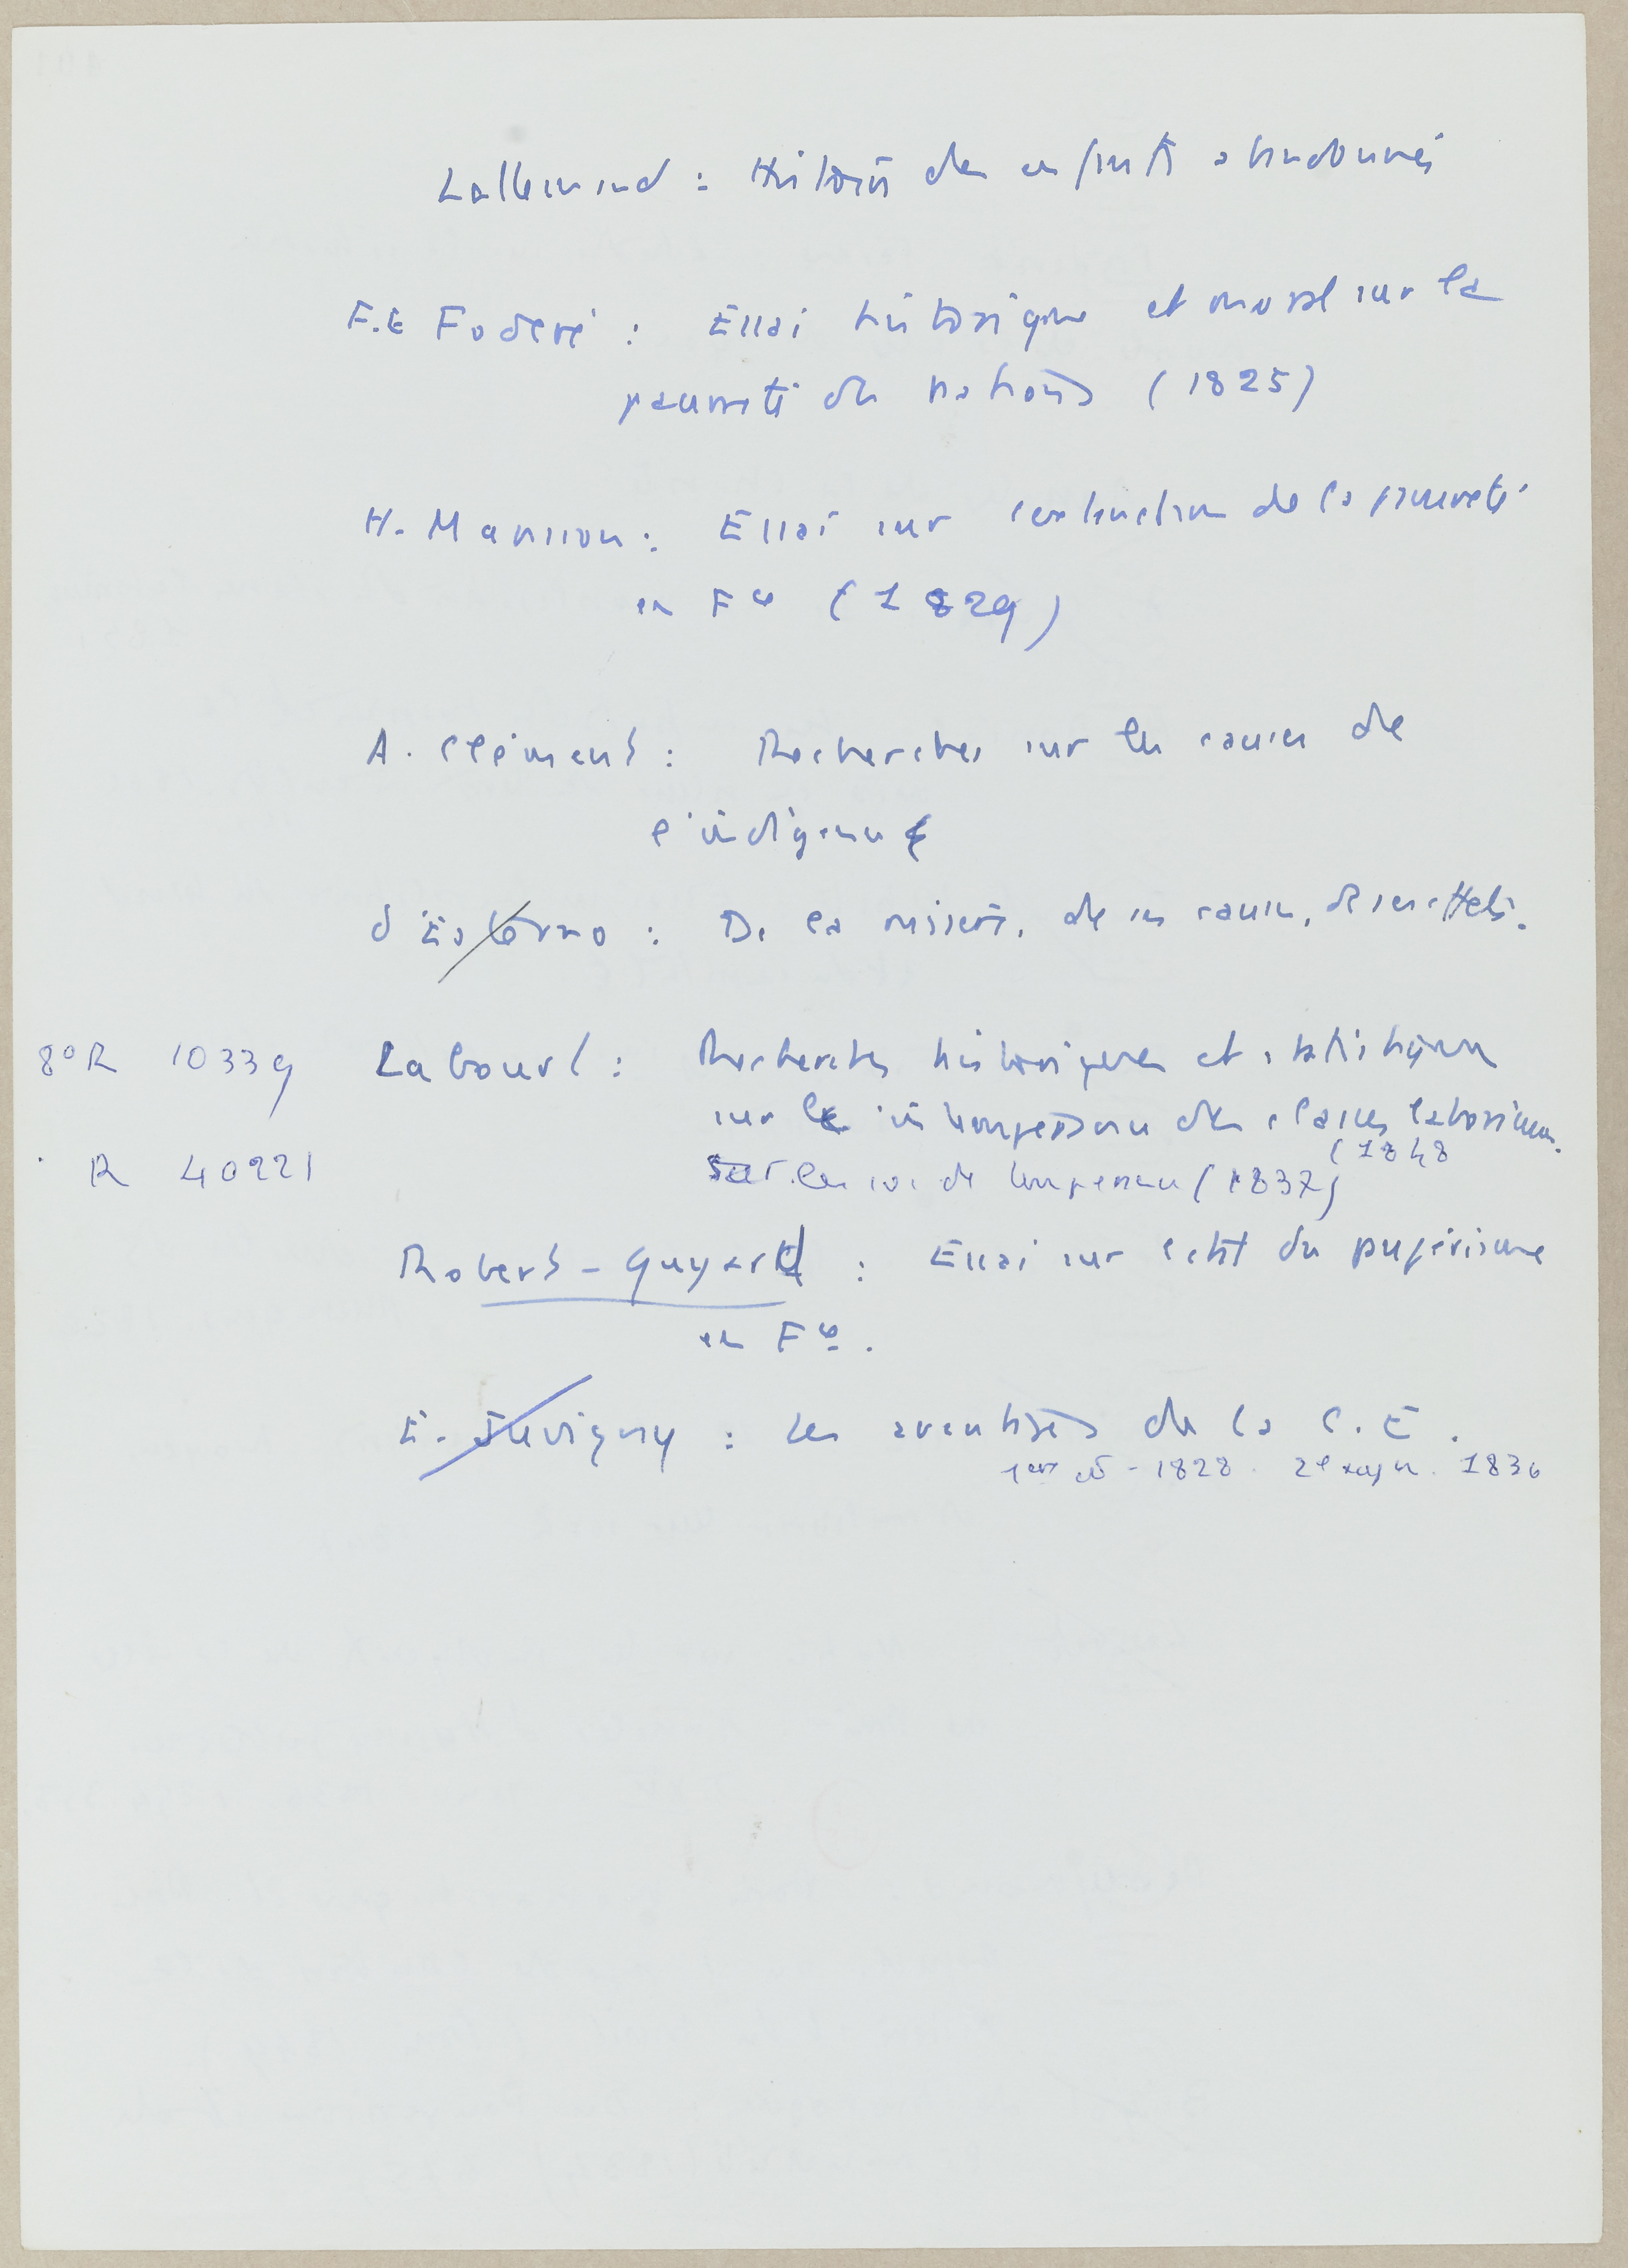 Lallemand : Histoire des enfants abandonnés
F.E Foderé : Essai historique et moral sur la
pauvreté des nations (1825)
H. Mansion : Essai sur l'extinction de la pauvreté
en Fce (1829)
A. Clément : Recherches sur les causes de
l'indigence
d'Esterno : De la misère, de ses causes, de ses effets.
8° R 10339 Labourt : Recherches historiques et statistiques
sur l'intempérance des classes laborieuses.
(1848
R 40221 Sur les soc. de tempérance (1837)
Robert - Guyard : Essai sur l'état du paupérisme
en Fce.
E. Juvigny : Les avantages de la C. E.
1ère éd - 1828. 2e 1836